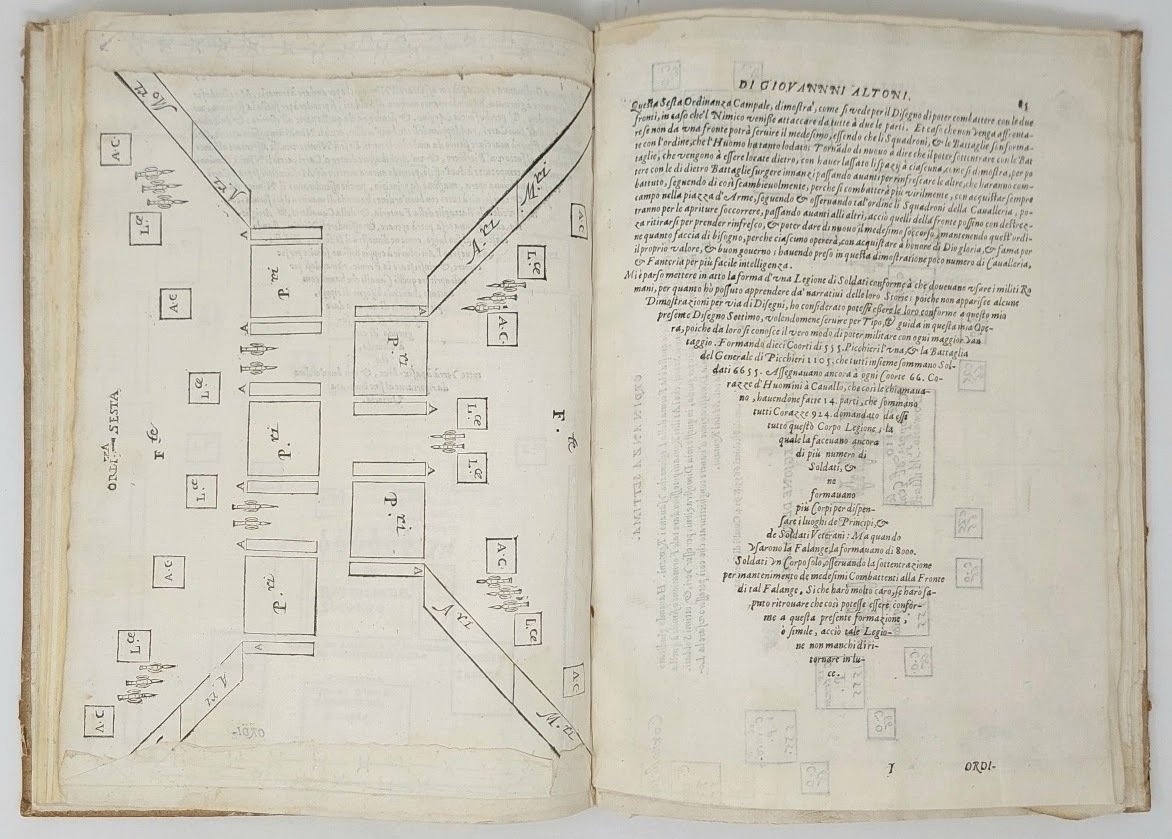 ORD.ZA SESTA
F.te
Mo.ri
A.ri
A·C
L.ce
A·C
L.ce
L.ce
A·C
L.ce
A·C
A
P.ri
A
A
P.ri
A
A
P.ri
A
A.ri
Mo.ri
A.ri
A
P.ri
A
A
P.ri
A
A.ri
Mo.ri
A·C
L.ce
A·C
L.ce
L.ce
A·C
L.ce
A·C
F.te
DI GIOVANNNI ALTONI.
85
Questa Sesta Ordinanza Campale, dimostra, come si vede per il Disegno di poter combattere con le due
fronti, in caso che'l Nimico venisse attaccare da tutte à due le parti. Et caso che non venga affronta-
re se non da vna fronte potrà seruire il medesimo, essendo che li Squadroni, & le Battaglie si è forma-
te con l'ordine, che l'Huomo hà tanto lodato; Tornādo di nuouo à dire che il poter sottentrare con le Bat
taglie, che vengono à essere locate dietro, con hauer lassato li spazÿ à ciascuna, come si dimostra, per po
tere con le di dietro Battaglie surgere innanzi passando auanti per rinfrescare le altre, che haranno com-
battuto, seguendo di così scambieuolmente, perche si combatterà più virilmente, con acquistar sempre
campo nella piazza d'Arme, seguendo & osseruando tal'ordine li Squadroni della Caualleria, po-
tranno per le apriture soccorrere, passando auanti alli altri, acciò quelli della fronte possino con destrez-
za ritirarsi per prender rinfresco, & poter dare di nuouo il medesimo soccorso, mantenendo quest'ordi-
ne quanto faccia di bisogno, perche ciascuno opererà, con acquistare à honore di Dio gloria, & fama per
il proprio valore, & buon gouerno; hauendo preso in questa dimostratione poco numero di Caualleria,
& Fanteria per più facile intelligenza.
Mi è parso mettere in atto la forma d'vna Legione di Soldati conforme à che doueuano vsare i militi Ro
mani, per quanto hò possuto apprendere da' narratiui delle loro Storie; poiche non apparisce alcune
Dimostrazioni per via di Disegni, ho considerato potessi essere le loro conforme a questo mio
presente Disegno Settimo, volendomene seruire per Tipo, & guida in questa mia Ope-
ra, poiche da loro si conosce il vero modo di poter militare con ogni maggior van
taggio. Formando dieci Coorti di 555. Picchieri l'vna, & la Battaglia
del Generale di Picchieri 1105. che tutti insieme sommano Sol-
dati 6655. Assegnauano ancora à ogni Coorte 66. Co-
razze d'Huomini à Cauallo, che così le chiamaua-
no, hauendone fatte 14. parti, che sommano
tutti Corazze 924. domandato da essi
tutto questo Corpo Legione; la
quale la faceuano ancora
di più numero di
Soldati, &
ne
formauano
più Corpi per dispen-
sare i luoghi de' Principi, &
de Soldati Veterani: Ma quando
vsarono la Falange, la formauano di 8000.
Soldati in vn Corpo solo, osseruando la sottentrazione
per mantenimento de medesimi Combattenti alla Fronte
di tal Falange, Si che harò molto caro, se harò sa-
puto ritrouare che così potesse essere confor-
me a questa presente formazione,
ò simile, acciò tale Legio-
ne non manchi di ri-
tornare in lu-
ce.
I
ORDI-